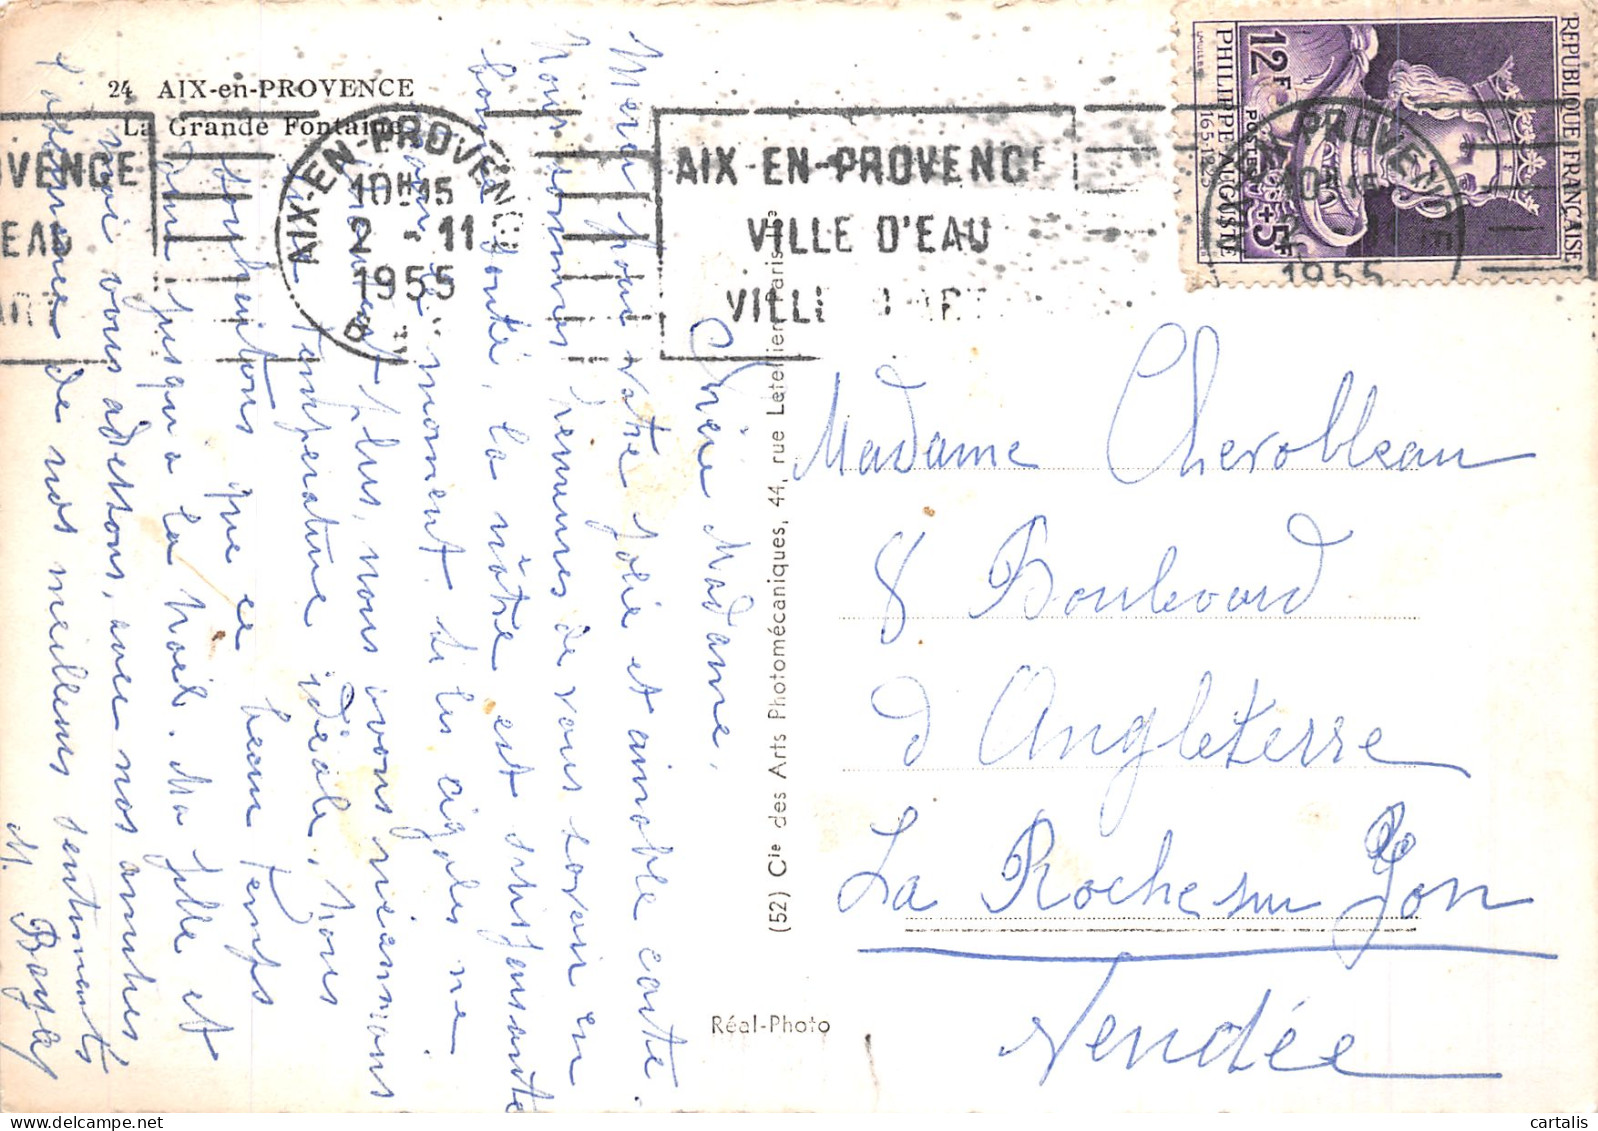 24 AIX-en-PROVENCE
La Grande Fontaine
AIX-EN-PROVENCE
10H15
2 - 11
1955
AIX-EN-PROVENCE
VILLE D'EAU
REPUBLIQUE FRANÇAISE
12F
POSTES
+5F
PHILIPPE-AUGUSTE
1165-1223
Chère Madame,
Merci pour votre jolie et aimable carte.
Nous sommes heureuses de vous savoir en
bonne santé, la nôtre est satisfaisante
pour le moment. Si les cigales ne
chantent plus, nous avons néanmoins
une température idéale, nous
souhaitons que ce beau temps
dure jusqu'a la Noël. Ma fille et
moi vous adressons, avec nos amitiés,
l'assurance de nos meilleurs sentiments
M.
(52) Cie des Arts Photomécaniques, 44, rue Letellier, Paris
Réal-Photo
Madame Cherobleau
8 Boulevard
d'Angleterre
La Roche sur Yon
Vendée
cartalis